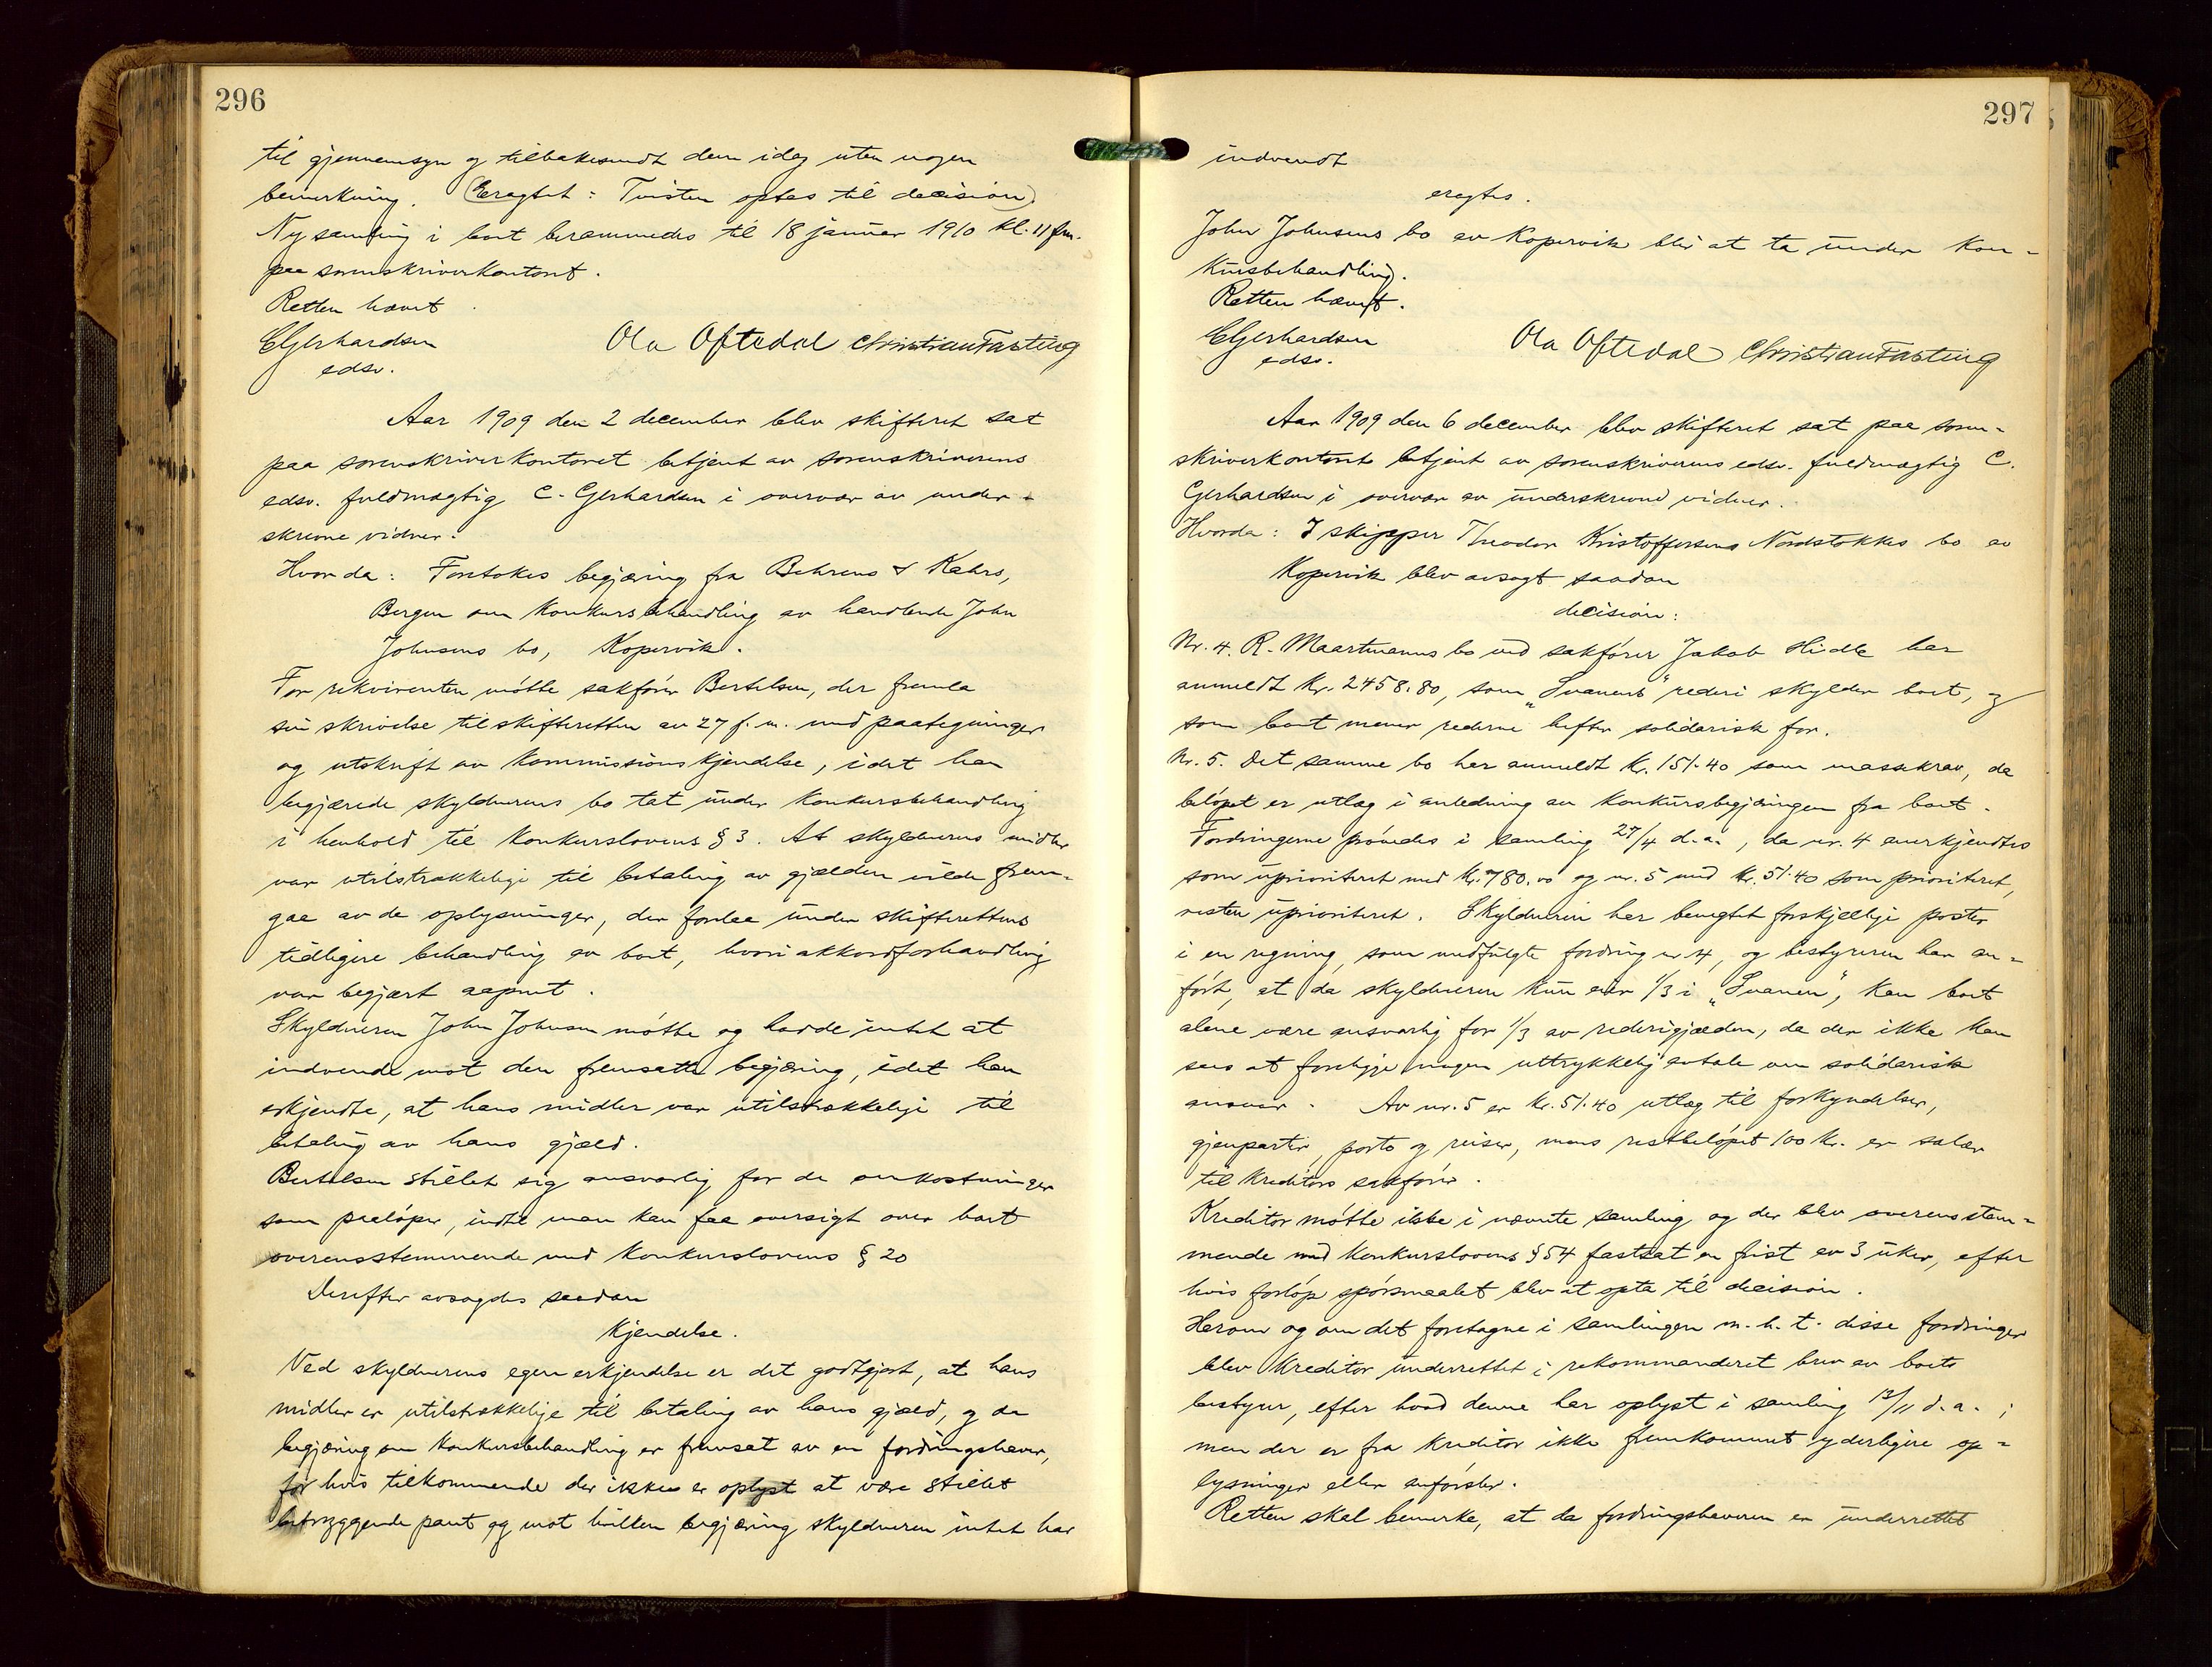 296
til gjennemsyn og tilbakesendt dem idag uten nogen
bemerkning. (Eragtet: Tvisten optas til decision)
Ny samling i boet berammedes til 18 januar 1910 kl. 11 fm.
paa sorenskriverkontoret.
Retten hævet
CGerhardsen
edsv.
Ola Oftedal Christian Fasting
Aar 1909 den 2 december blev skifteret sat
paa sorenskriverkontoret betjent av sorenskriverens
edsv. fuldmægtig C. Gerhardsen i overvær av under-
skrevne vidner.
Hvor da: Foretokes begjæring fra Behrens & Kahrs,
Bergen om konkursbehandling av handlende John
Johnsens bo, Kopervik.
For rekvirenten møtte sakfører Bertelsen, der fremla
sin skrivelse til skifteretten av 27 f.m. med paategninger
og utskrift av kommissionskjendelse, idet han
begjærede skyldnerens bo tat under konkursbehandling
i henhold til konkurslovens § 3. At skyldnerens midler
var utilstrækkelige til betaling av gjælden vilde frem-
gaa av de oplysninger, der forelaa under skifterettens
tidligere behandling av boet, hvori akkordforhandling
var begjært aapnet.
Skyldneren John Johnsen møtte og hadde intet at
indvende mot den fremsatte begjæring, idet han
erkjendte, at hans midler var utilstrækkelige til
betaling av hans gjæld.
Bertelsen stillet sig ansvarlig for de omkostninger
som paaløper, indtil man kan faa oversigt over boet
overensstemmende med konkurslovens § 20
Derefter avsagdes saadan
Kjendelse.
Ved skyldnerens egen erkjendelse er det godtgjort, at hans
midler er utilstrækkelige til betaling av hans gjæld, og da
begjæring om konkursbehandling er fremsat av en fordringshaver,
for hvis tilkommende der ikke er oplyst at være stillet
betryggende pant og mot hvilken begjæring skyldneren intet har
297
indvendt
eragtes.
John Johnsens bo av Kopervik blir at ta under kon-
kursbehandling.
Retten hævet.
CGerhardsen
edsv.
Ola Oftedal Christian Fasting
Aar 1909 den 6 december blev skifteret sat paa soren-
skriverkontoret betjent av sorenskriverens edsv. fuldmægtig C.
Gerhardsen i overvær av underskrevne vidner.
Hvorda: I skipper Theodor Kristoffersens Nordstokkes bo av
Kopervik blev avsagt saadan
decision:
Nr. 4. R. Maartmanns bo ved sakfører Jakob Hidle har
anmeldt kr. 2458.80, som "Svanens" rederi skylder boet, og
som boet mener rederne hefter solidarisk for.
Nr. 5. Det samme bo har anmeldt kr. 151.40 som massekrav, da
beløpet er utlæg i anledning av konkursbegjæringen fra boet.
Fordringerne prøvedes i samling 27/4 d.a., da nr. 4 anerkjendtes
som uprioritert med kr. 780.00 og nr. 5 med kr. 51.40 som prioriteret,
resten uprioriteret. Skyldneren har benegtet forskjellige poster
i en regning, som medfulgte fordring nr 4, og bestyreren har an-
ført, at da skyldneren kun eier 1/3 i "Svanen", kan boet
alene være ansvarlig for 1/3 av rederigjælden, da der ikke kan
sees at foreligge nogen uttrykkelig avtale om solidarisk
ansvar. Av nr. 5 er kr. 51.40 utlæg til forkyndelser,
gjenparter, porto og reiser, mens restbeløpet 100 kr. er salær
til kreditors sakfører.
Kreditor møtte ikke i nævnte samling og der blev overensstem-
mende med konkurslovens § 54 fastsat en frist av 3 uker, efter
hvis forløp spørsmaalet blev at opta til decision.
Herom og om det foretagne i samlingen m.h.t. disse fordringer
blev kreditor underrettet i rekommanderet brev av boets
bestyrer, efter hvad denne har oplyst i samling 13/11 d.a.;
men der er fra kreditor ikke fremkommet yderligere op-
lysninger eller anførsler.
Retten skal bemerke, at da fordringshaveren er underrettet